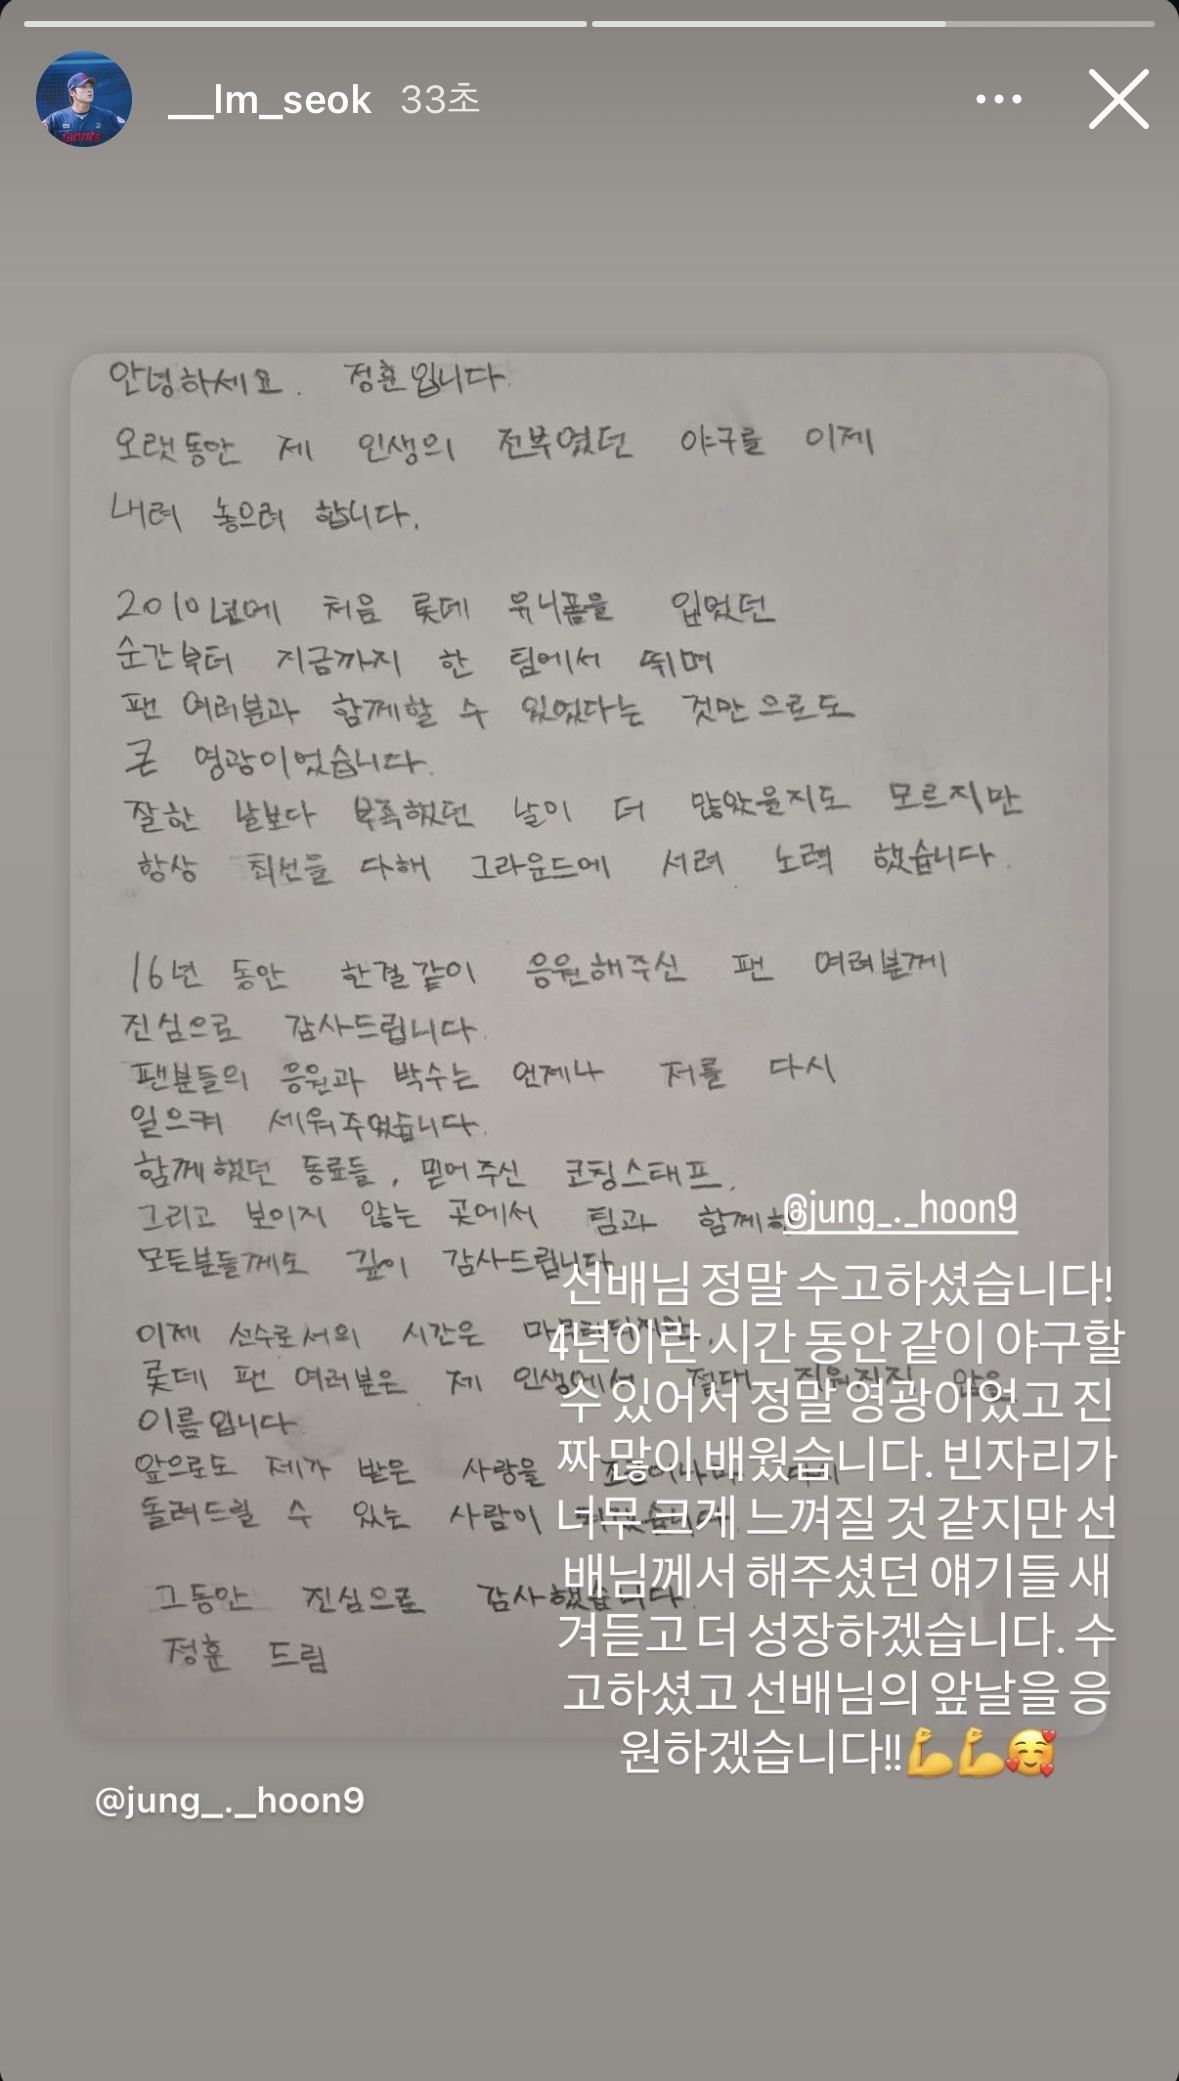 __lm_seok 33초
Giants
안녕하세요. 정훈입니다.
오랫동안 제 인생의 전부였던 야구를 이제
내려 놓으려 합니다.
2010년에 처음 롯데 유니폼을 입었던
순간부터 지금까지 한 팀에서 뛰며
팬 여러분과 함께할 수 있었다는 것만으로도
큰 영광이었습니다.
잘한 날보다 부족했던 날이 더 많았을지도 모르지만
항상 최선을 다해 그라운드에 서려 노력 했습니다.
16년 동안 한결같이 응원해주신 팬 여러분께
진심으로 감사드립니다.
팬분들의 응원과 박수는 언제나 저를 다시
일으켜 세워주었습니다.
함께했던 동료들, 믿어주신 코칭스태프,
그리고 보이지 않는 곳에서 팀과
모든분들께도 깊이 감사드립니다.
이제 선수로서의 시간은
롯데 팬 여러분은 제 인생에서 절대 지워지지 않을
이름입니다
앞으로도 제가 받은 사랑을
돌려드릴 수 있는 사람이 되겠습니다.
그동안 진심으로 감사했습니다.
정훈 드림
@jung_._hoon9
선배님 정말 수고하셨습니다!
4년이란 시간 동안 같이 야구할
수 있어서 정말 영광이었고 진
짜 많이 배웠습니다. 빈자리가
너무 크게 느껴질 것 같지만 선
배님께서 해주셨던 얘기들 새
겨듣고 더 성장하겠습니다. 수
고하셨고 선배님의 앞날을 응
원하겠습니다!!💪💪🥰
@jung_._hoon9